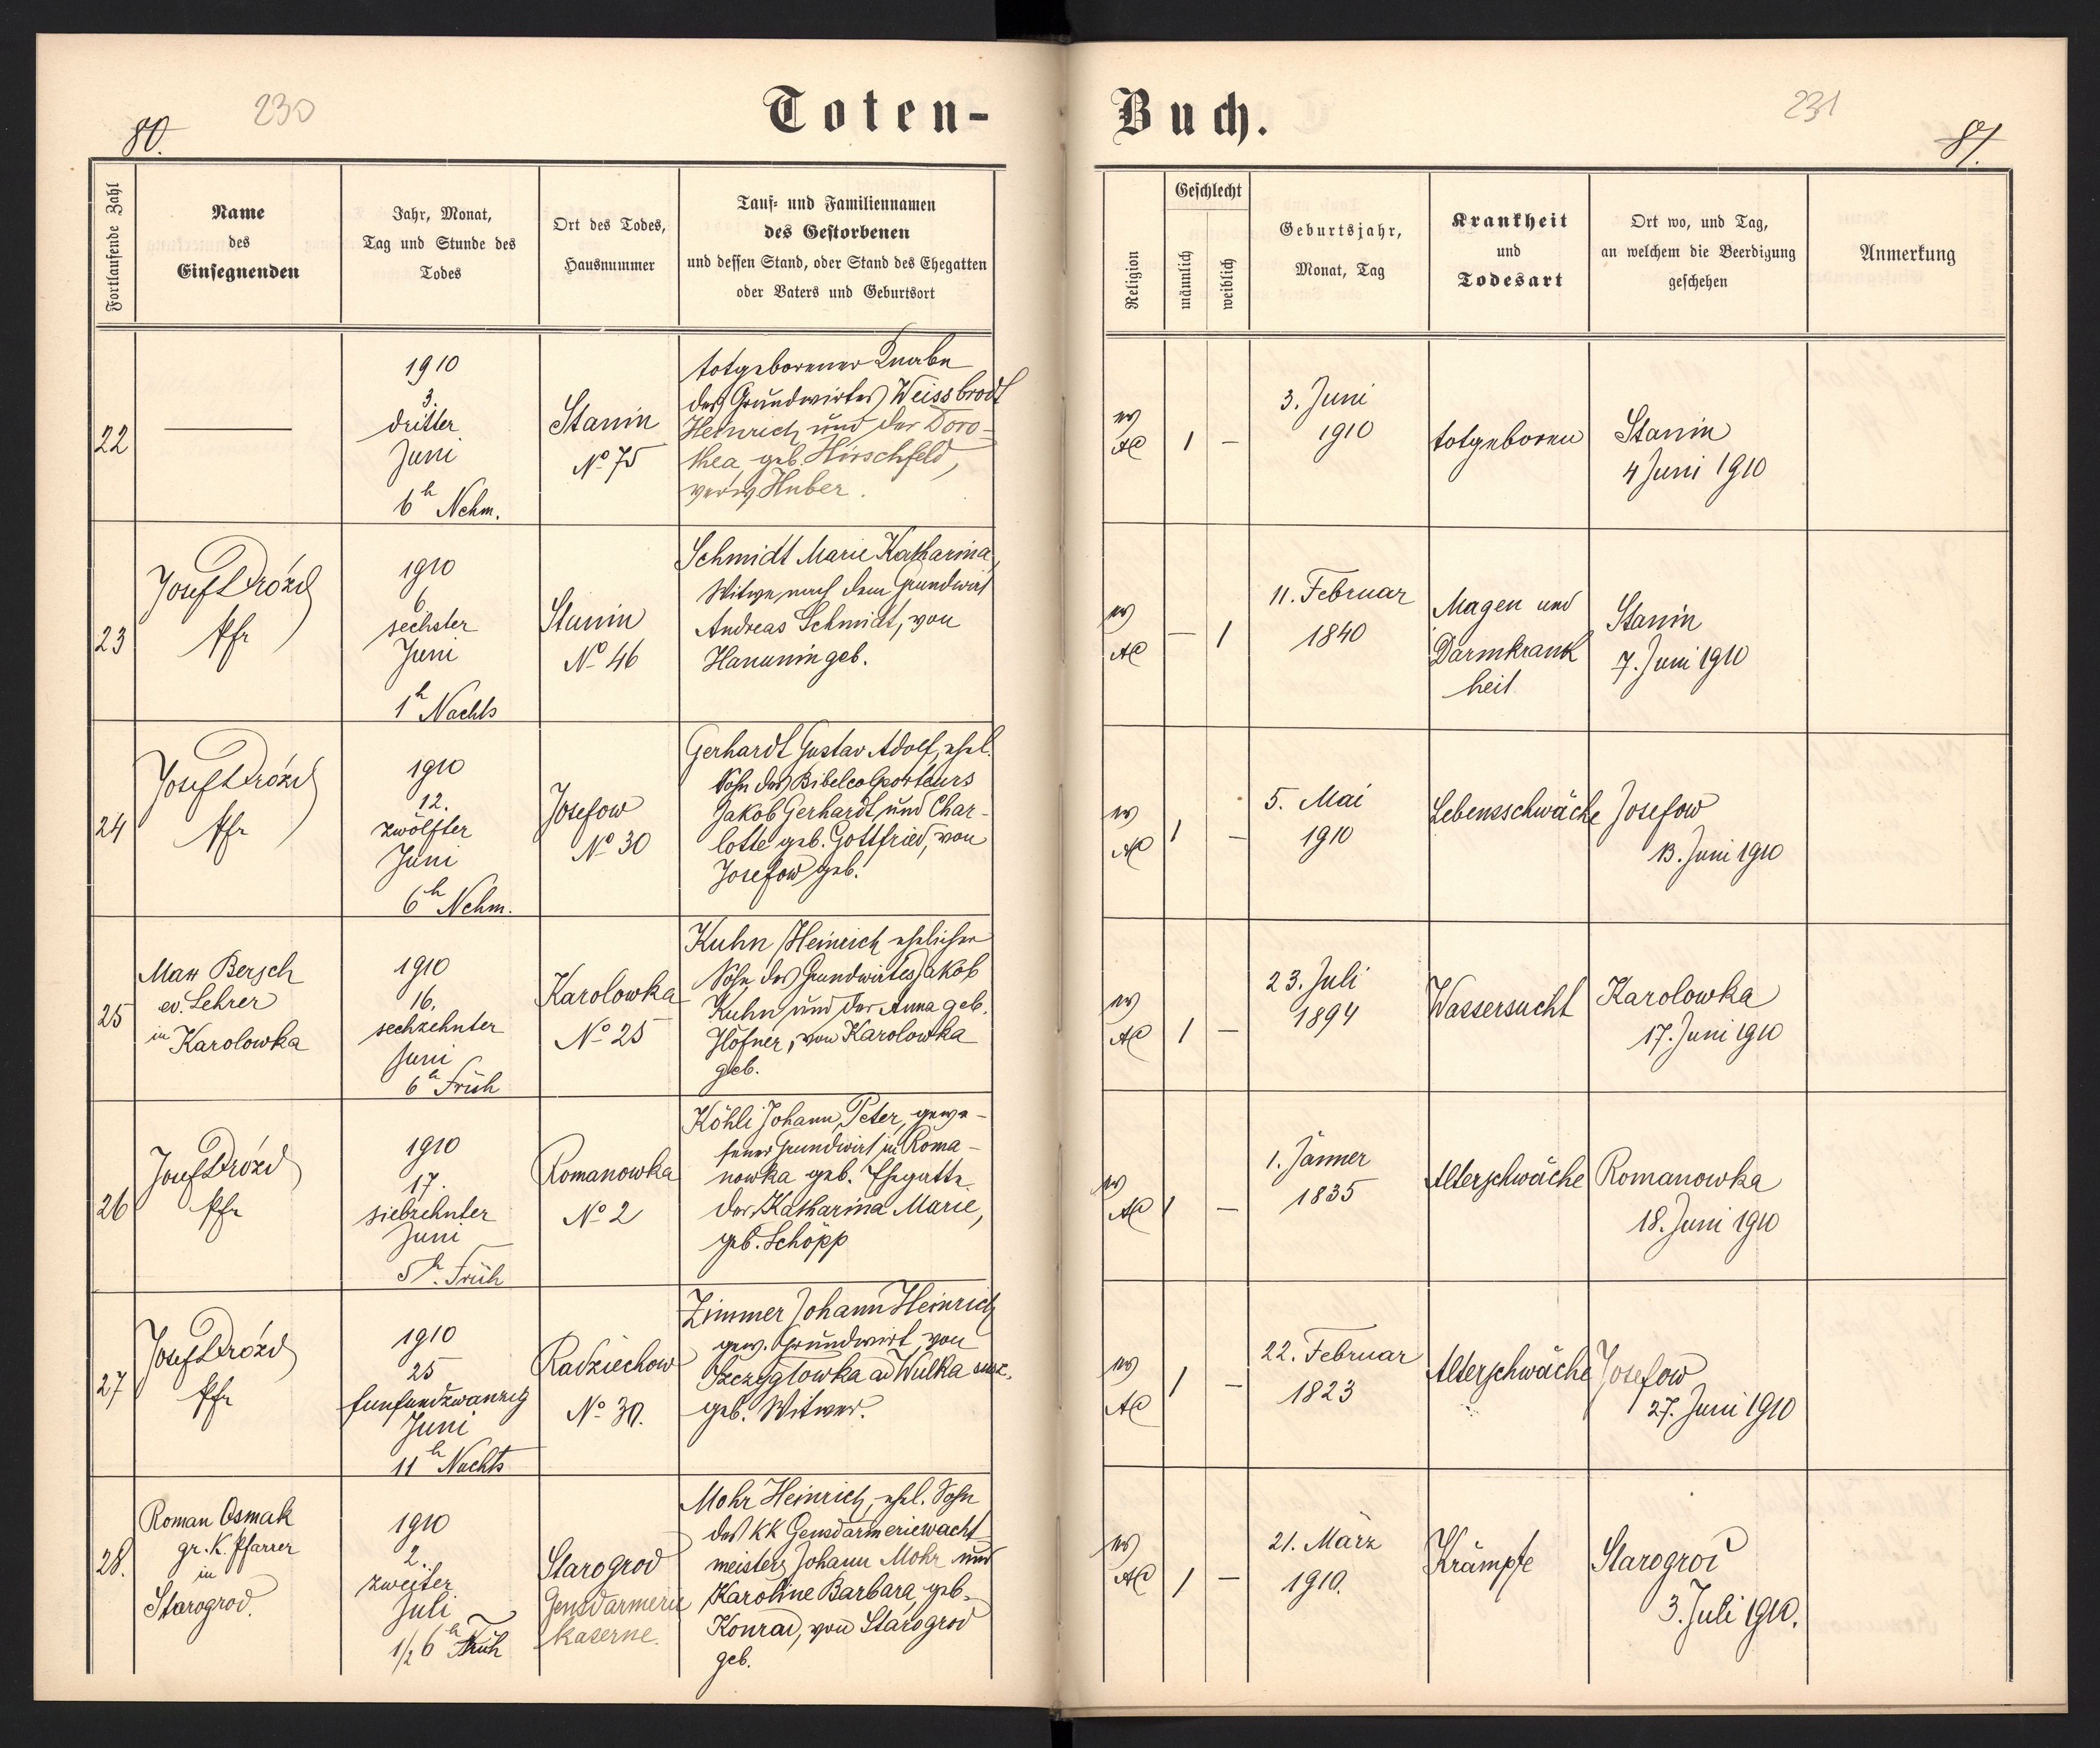 230
80.
Toten-
Fortlaufende Zahl
Name
des
Einsegnenden
Jahr, Monat,
Tag und Stunde des
Todes
Ort des Todes,
Hausnummer
Tauf- und Familiennamen
des Gestorbenen
und dessen Stand, oder Stand des Ehegatten
oder Vaters und Geburtsort
22
1910
3.
dritter
Juni
6h Nchm.
Stanin
No 75
totgeborener Knabe
des Grundwirtes Weissbrodt
Heinrich und der Doro-
thea geb. Hirschfeld,
verw. Huber.
23
Josef Drózd
Pfr
1910
6.
sechster
Juni
1h Nachts
Stanin
No 46
Schmidt Marie Katharina,
Witwe nach dem Grundwirt
Andreas Schmidt, von
Hanunin geb.
24
Josef Drózd
Pfr
1910
12.
zwölfter
Juni
6h Nchm.
Josefow
No 30
Gerhardt Gustav Adolf, ehel.
Sohn des Bibelcolporteurs
Jakob Gerhardt und Char-
lotte geb. Gottfried, von
Josefow geb.
25
Max Bersch
ev. Lehrer
in Karolowka
1910
16.
sechzehnter
Juni
6h Früh
Karolowka
No 25
Kuhn Heinrich ehelicher
Sohn des Grundwirtes Jakob
Kuhn und der Anna geb.
Höfner, von Karolowka
geb.
26
Josef Drózd
Pfr
1910
17.
siebzehnter
Juni
5h. Früh
Romanowka
No 2
Köhli Johann Peter, gewe-
sener Grundwirt in Roma-
nowka geb. Ehegatte
der Katharina Marie,
geb. Schöpp
27
Josef Drózd
Pfr
1910
25
funfundzwanzig
Juni
11h Nachts
Radziechow
No 30.
Zimmer Johann Heinrich
gew. Grundwirt von
Szczyglowka ad Wulka
geb. Witwer.
28.
Roman Osmak
gr. K. Pfarrer
in
Starogrod.
1910
2.
zweiter
Juli
1/2 6h Früh
Starogrod
Gensdarmerie
kaserne.
Mohr Heinrich, ehel. Sohn
des KK Gensdarmeriewacht
meisters Johann Mohr und
Karoline Barbara, geb.
Konrad, von Starogrod
geb.
231
81.
Buch.
Religion
Geschlecht
männlich
weiblich
Geburtsjahr,
Monat, Tag
Krankheit
und
Todesart
Ort wo, und Tag,
an welchem die Beerdigung
geschehen
Anmerkung
ev
AC
1 –
3. Juni
1910
totgeboren
Stanin
4 Juni 1910
ev
AC
– 1
11. Februar
1840
Magen und
Darmkrank
heit
Stanin
7. Juni 1910
ev
AC
1 –
5. Mai
1910
Lebensschwäche
Josefow
13. Juni 1910
ev
AC
1 –
23. Juli
1894
Wassersucht
Karolowka
17. Juni 1910
ev
AC
1 –
1. Jänner
1835
Alterschwäche
Romanowka
18. Juni 1910
ev
AC
1 –
22. Februar
1823
Alterschwäche
Josefow
27. Juni 1910
ev
AC
1 –
21. März
1910.
Krämpfe
Starogrod
3. Juli 1910.